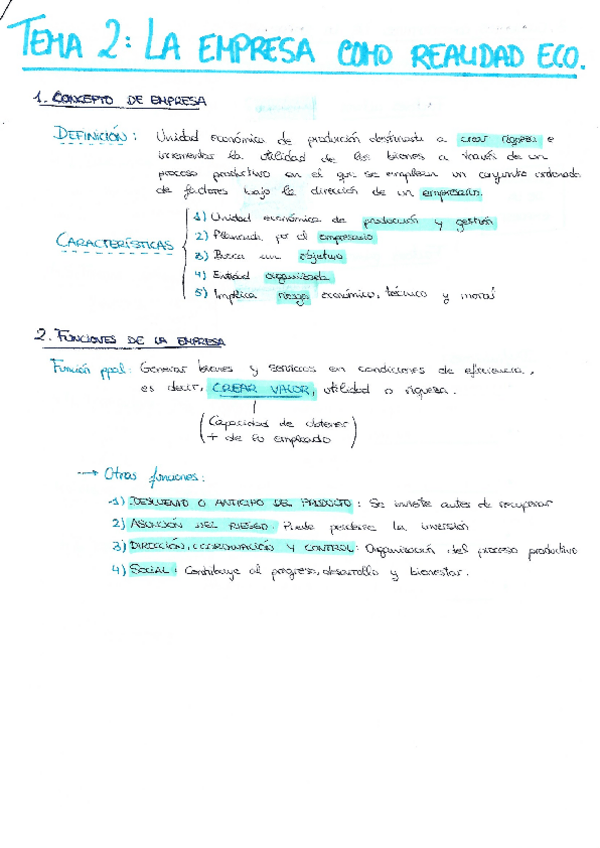 TEMA 2: LA EMPRESA COMO REALIDAD ECO.
1. CONCEPTO DE EMPRESA
DEFINICIÓN: Unidad económica de producción destinada a crear riqueza e
incrementar la utilidad de los bienes a través de un
proceso productivo en el que se emplean un conjunto ordenado
de factores bajo la dirección de un empresario.
CARACTERÍSTICAS
1) Unidad económica de producción y gestión
2) Planificada por el empresario
3) Busca un objetivo
4) Entidad organizada
5) Implica riesgo económico, técnico y moral
2. FUNCIONES DE LA EMPRESA
Función ppal: Generar bienes y servicios en condiciones de eficiencia,
es decir, CREAR VALOR, utilidad o riqueza.
(Capacidad de obtener
+ de lo empleado)
→ Otras funciones:
1) DESCUENTO O ANTICIPO DEL PRODUCTO: Se invierte antes de recuperar
2) ASUNCIÓN DEL RIESGO: Puede perderse la inversión
3) DIRECCIÓN, COORDINACIÓN Y CONTROL: Organización del proceso productivo
4) SOCIAL: Contribuye al progreso, desarrollo y bienestar.